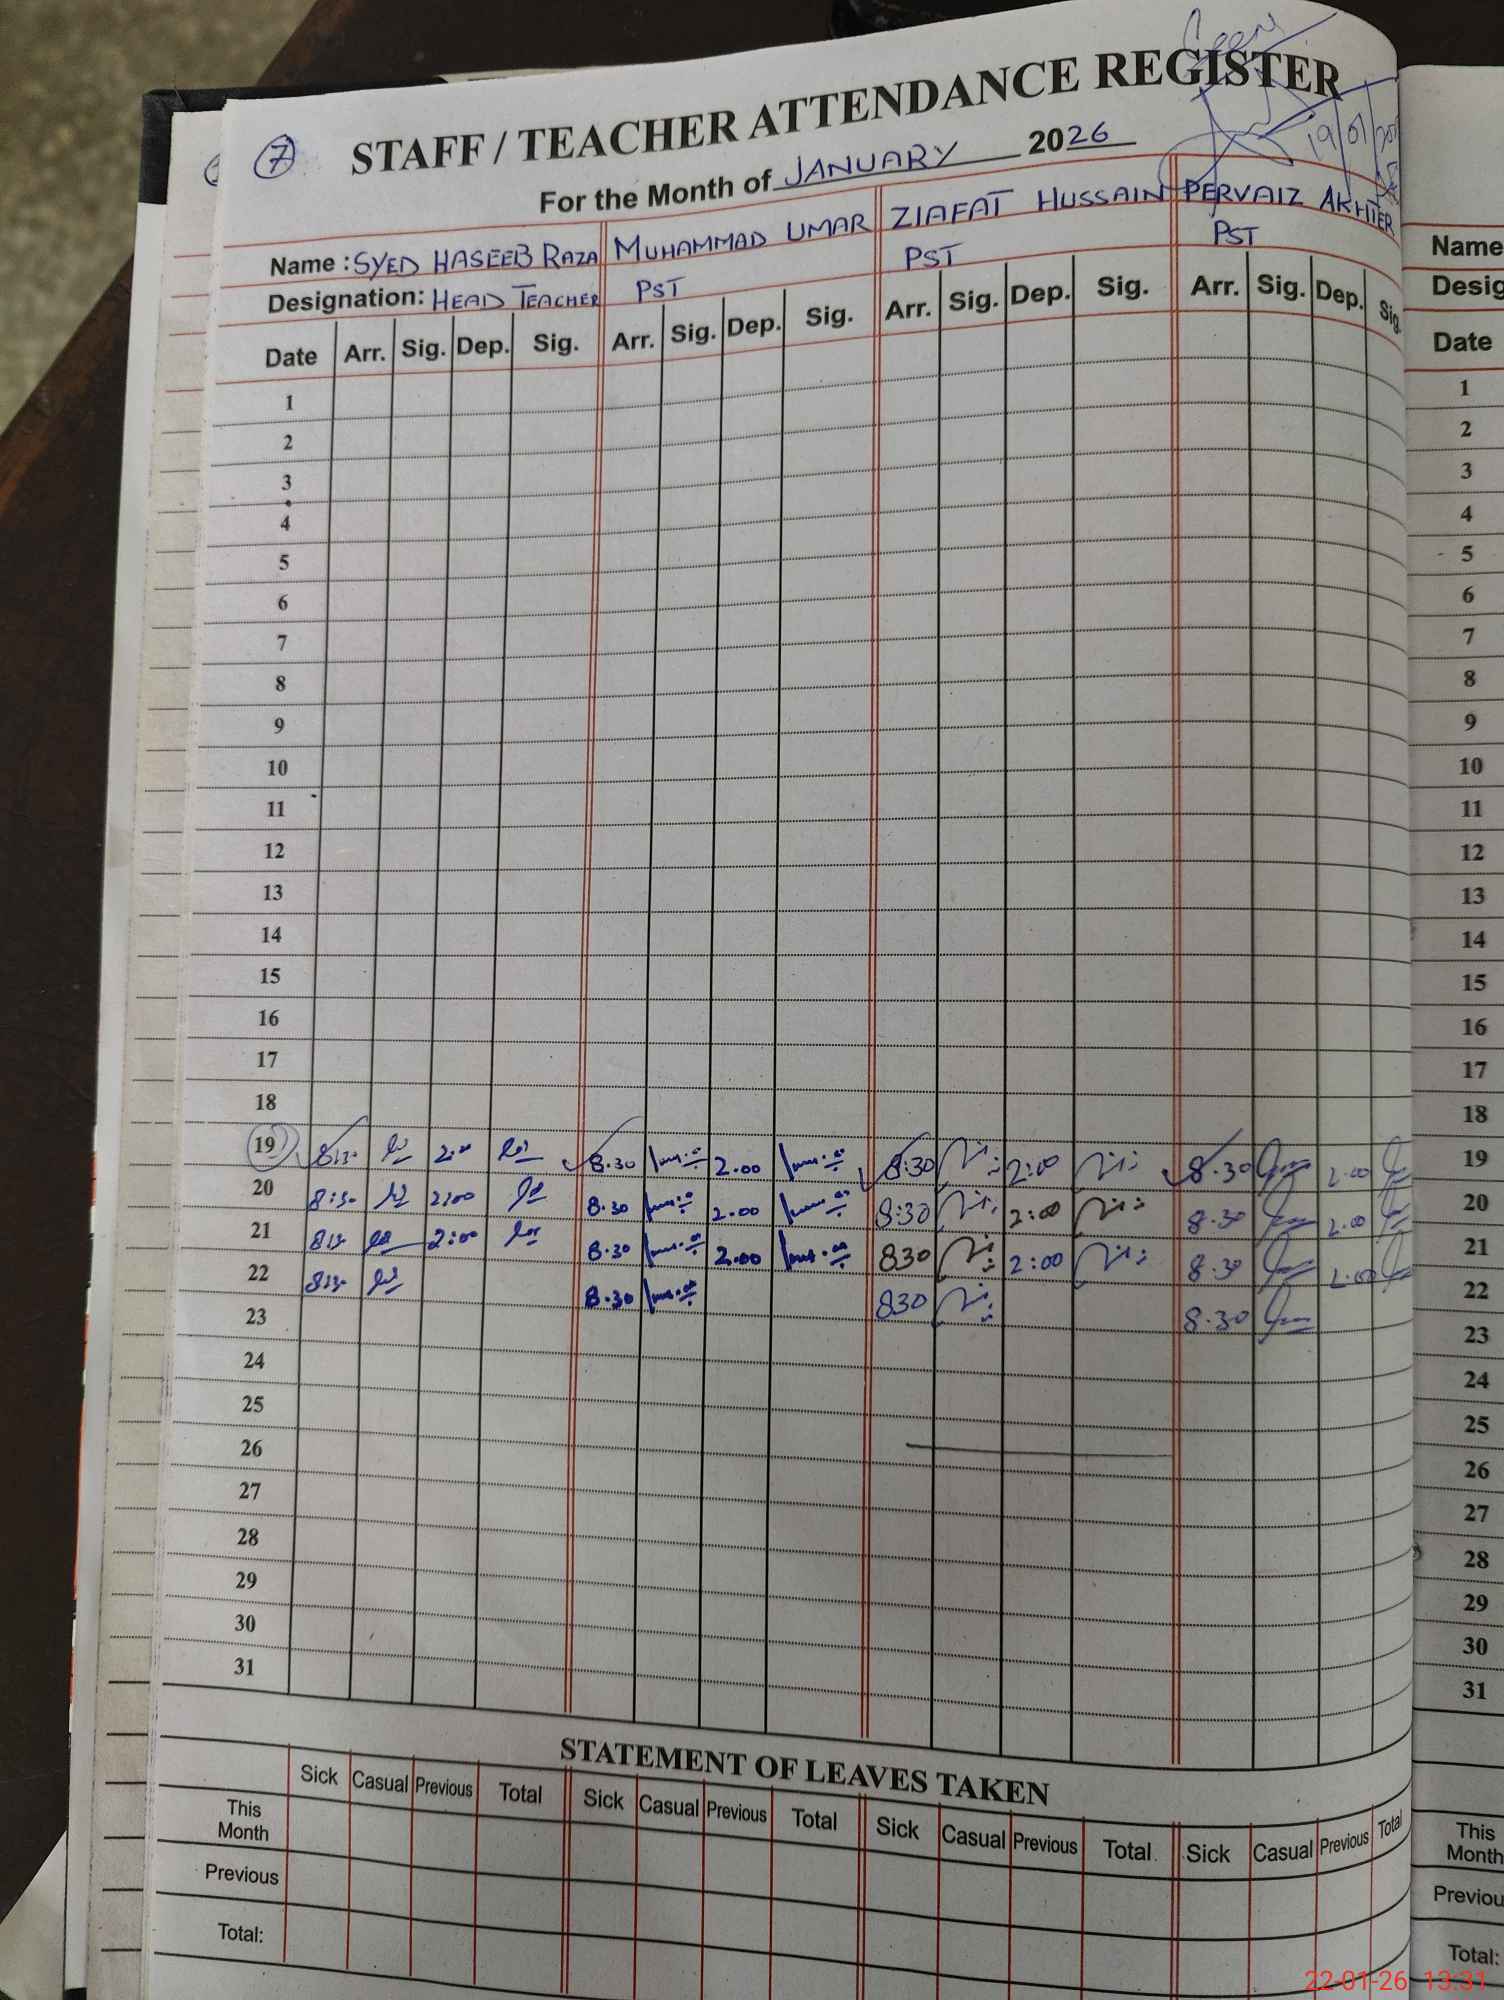 Seen
7
STAFF / TEACHER ATTENDANCE REGISTER
19/01/2026
For the Month of JANUARY 2026
Name : SYED HASEEB RAZA MUHAMMAD UMAR ZIAFAT HUSSAIN PERVAIZ AKHTER Name
Designation: HEAD TEACHER PST PST PST Desig
Date Arr. Sig. Dep. Sig. Arr. Sig. Dep. Sig. Arr. Sig. Dep. Sig. Arr. Sig. Dep. Sig. Date
1 1
2 2
3 3
4 4
5 5
6 6
7 7
8 8
9 9
10 10
11 11
12 12
13 13
14 14
15 15
16 16
17 17
18 18
19 8:30 2:00 8.30 2.00 8:30 2:00 8.30 2.00 19
20 8:30 2:00 8.30 2.00 8:30 2:00 8.30 2.00 20
21 8:30 2:00 8.30 2.00 830 2:00 8.30 2.00 21
22 8:30 8.30 830 8.30 22
23 23
24 24
25 25
26 26
27 27
28 28
29 29
30 30
31 31
STATEMENT OF LEAVES TAKEN
Sick Casual Previous Total Sick Casual Previous Total Sick Casual Previous Total Sick Casual Previous Total
This Month This Month
Previous Previou
Total: Total:
22-01-26 13:31